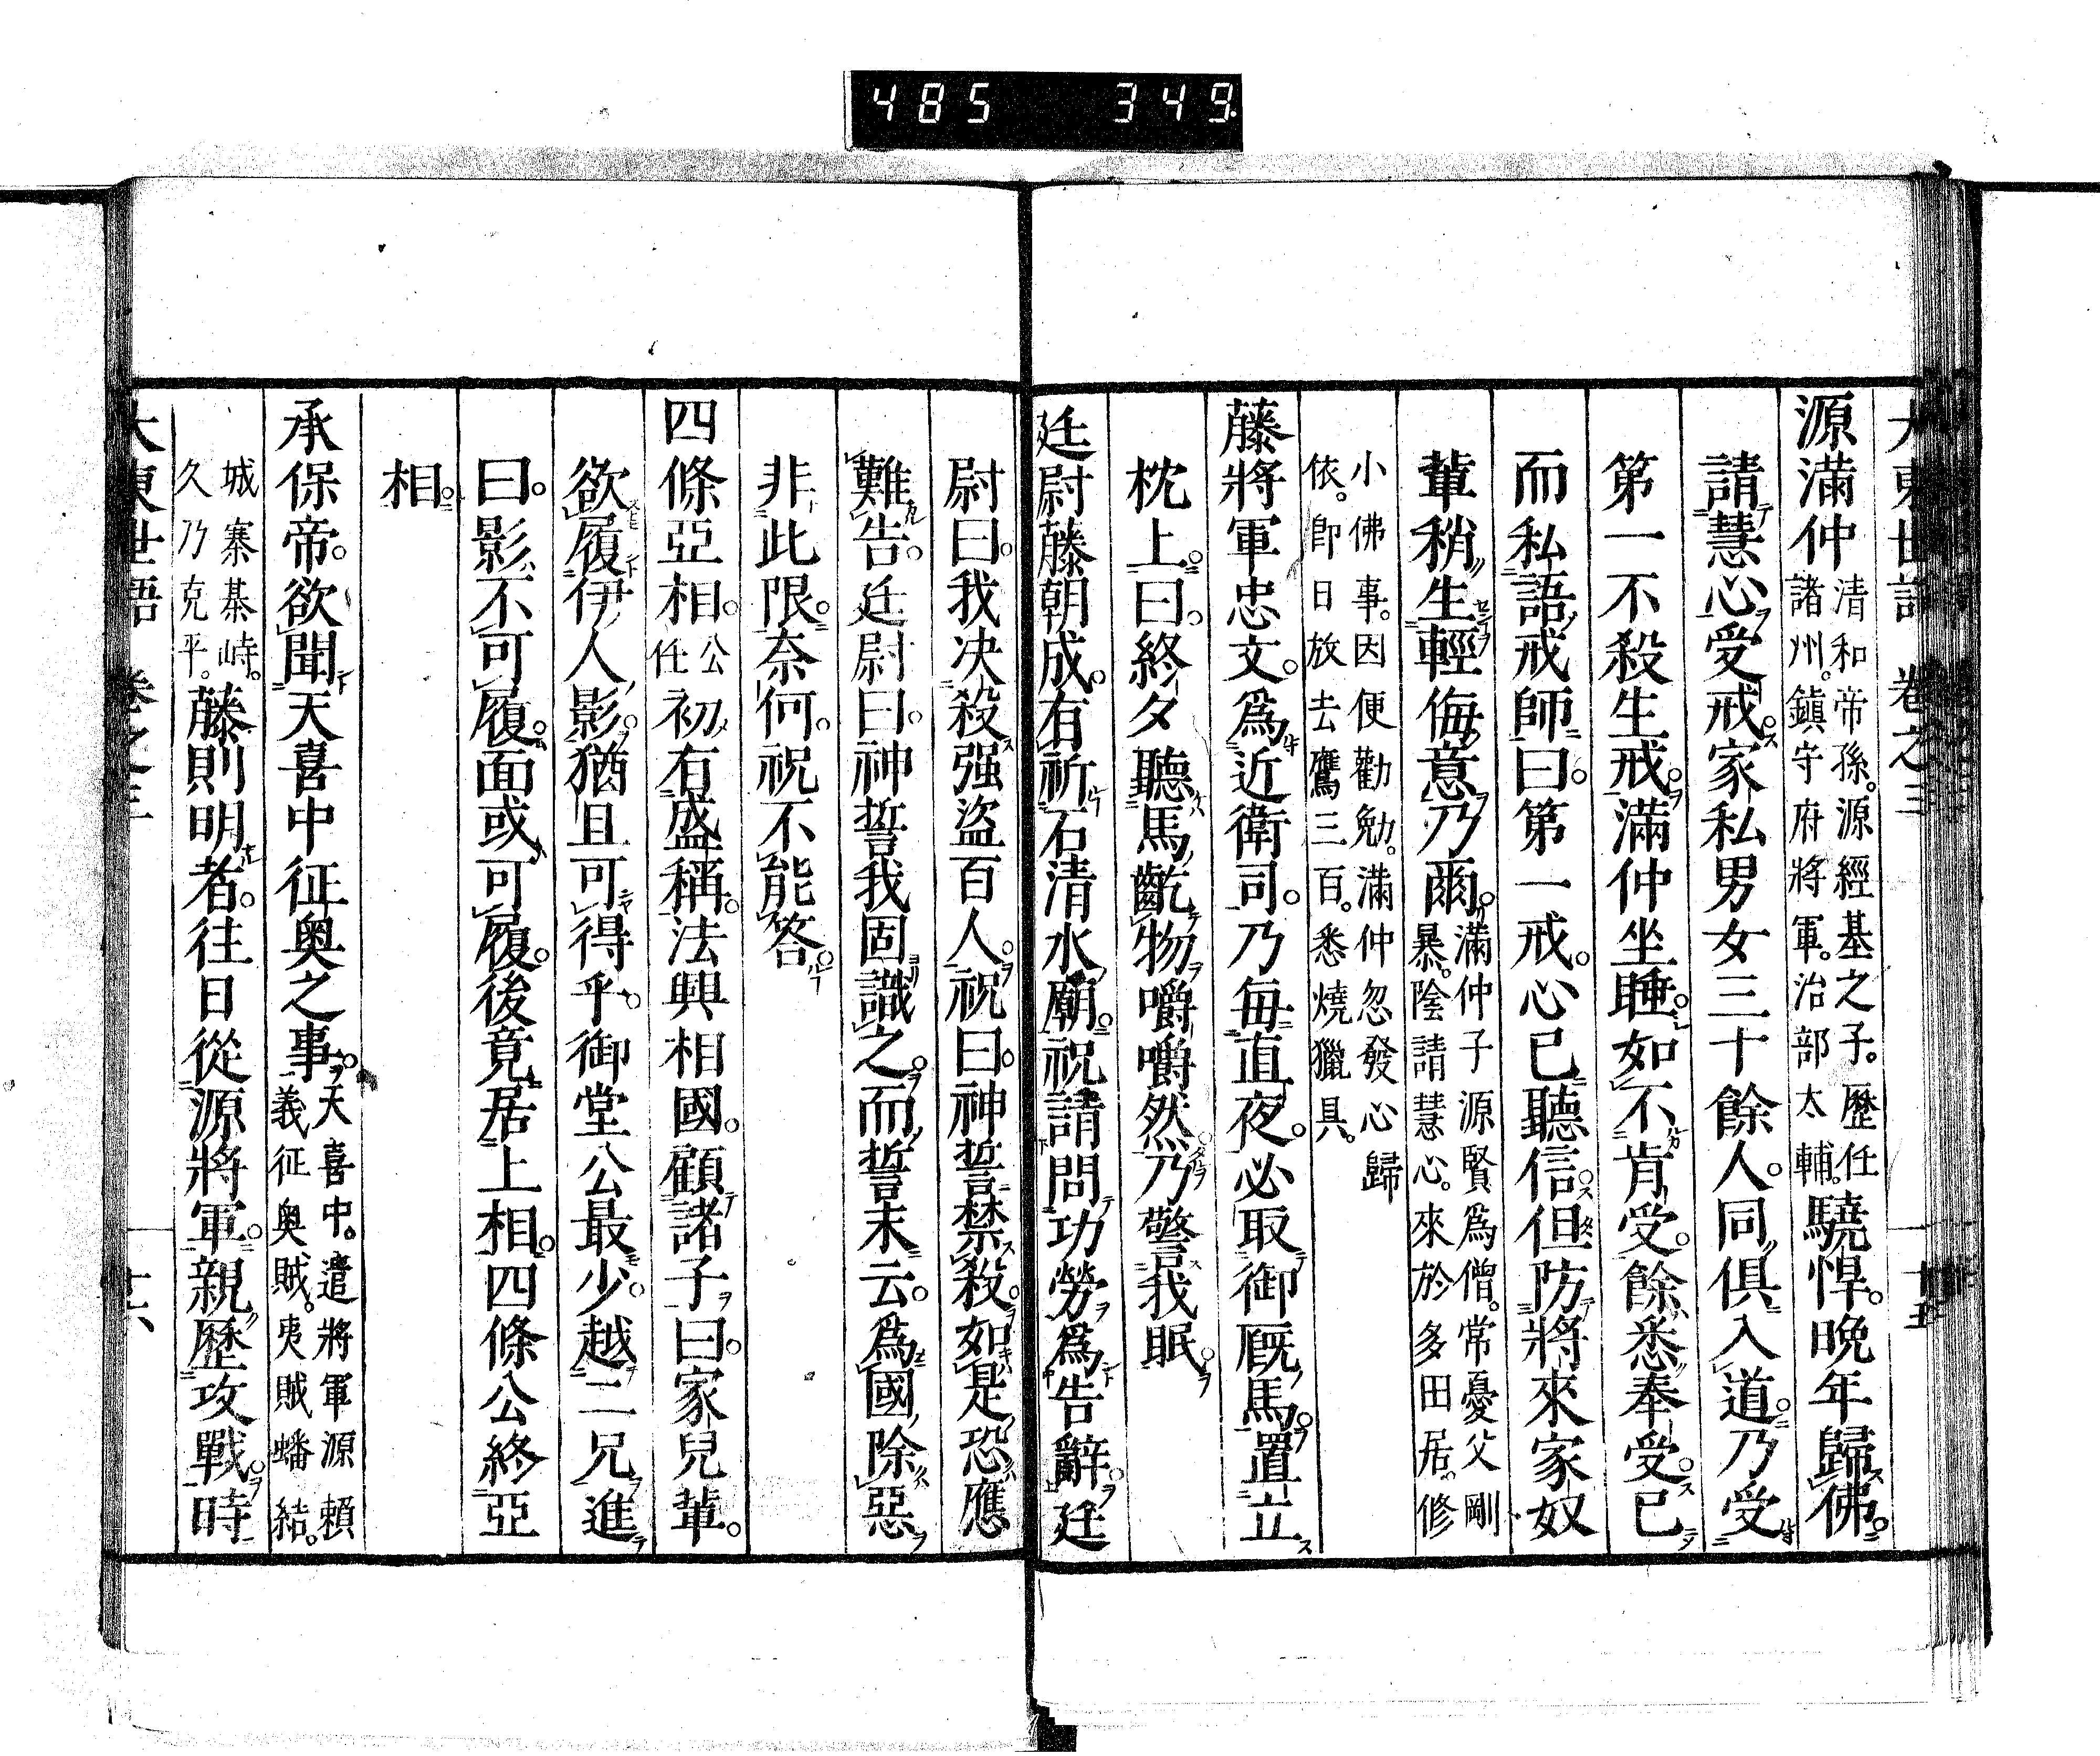 485 349
大東世語 卷之三 十五
源滿仲清和帝孫。源經基之子。歷任諸州。鎮守府將軍。治部太輔。驍悍。晩年歸佛。
請慧心受戒。家私男女三十餘人。同俱入道。乃受
第一不殺生戒。滿仲坐睡。如不肯受。餘悉奉受。已
而私語戒師曰。第一戒。心已聽信。但防將來家奴
輩稍生輕侮意乃爾。滿仲子源賢爲僧。常憂父剛暴。陰請慧心。來於多田居。修
小佛事。因便勸勉。滿仲忽發心歸依。即日放去鷹三百。悉燒獵具。
藤將軍忠文。爲近衛司。乃每直夜。必取御厩馬。置立
枕上。曰。終夕聽馬齕物嚼嚼然。乃警我眠。
廷尉藤朝成。有祈石清水廟。祝請問功勞爲告辭。廷
尉曰。我决殺强盜百人。祝曰。神誓禁殺。如是恐應
難告。廷尉曰。神誓我固識之。而誓末云。爲國除惡
非此限。奈何。祝不能答。
四條亞相。公任初有盛稱。法興相國。顧諸子曰。家兒輩。
欲履伊人影。猶且可得乎。御堂公最少。越二兄進
曰。影不可履。面或可履。後竟居上相。四條公終亞
相。
承保帝。欲聞天喜中征奥之事。天喜中。遣將軍源賴義征奥賊。夷賊蟠結。
城寨棊峙。久乃克平。藤則明者。往日從源將軍。親歷攻戰。時
大東世語 卷之三 十六